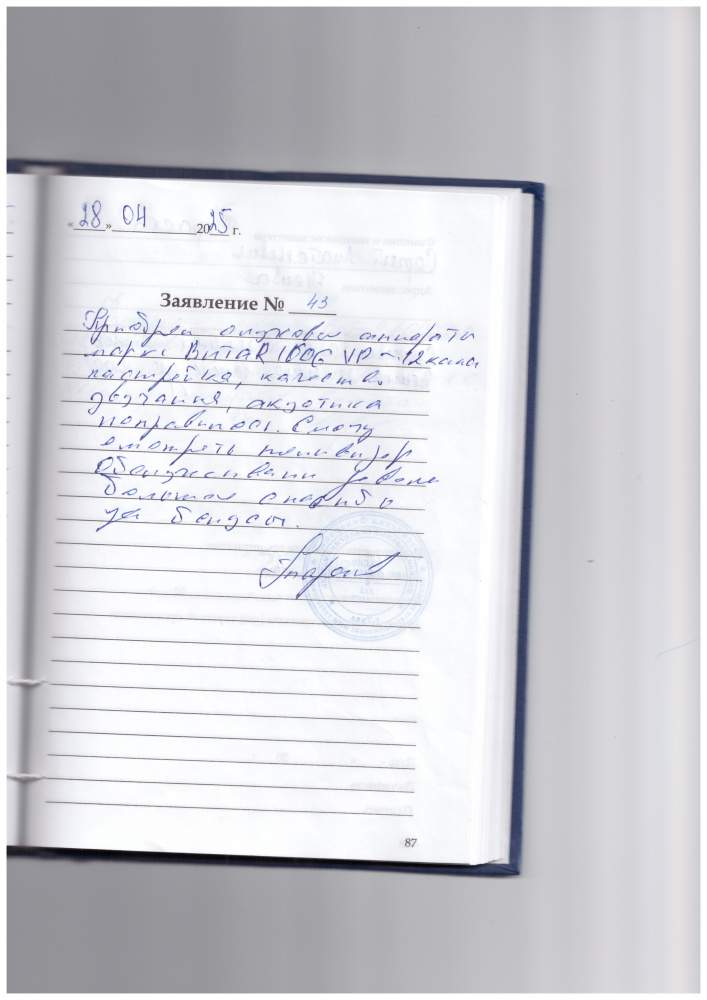 «28» 04 2025 г.
Заявление № 43
Приобрел слуховые аппараты
марки Витаг 100G VP – 12 кана
настройка, качество
звучания, акустика
понравилось. Смогу
смотреть телевизор
Обслуживанием доволен
большое спасибо
за
87